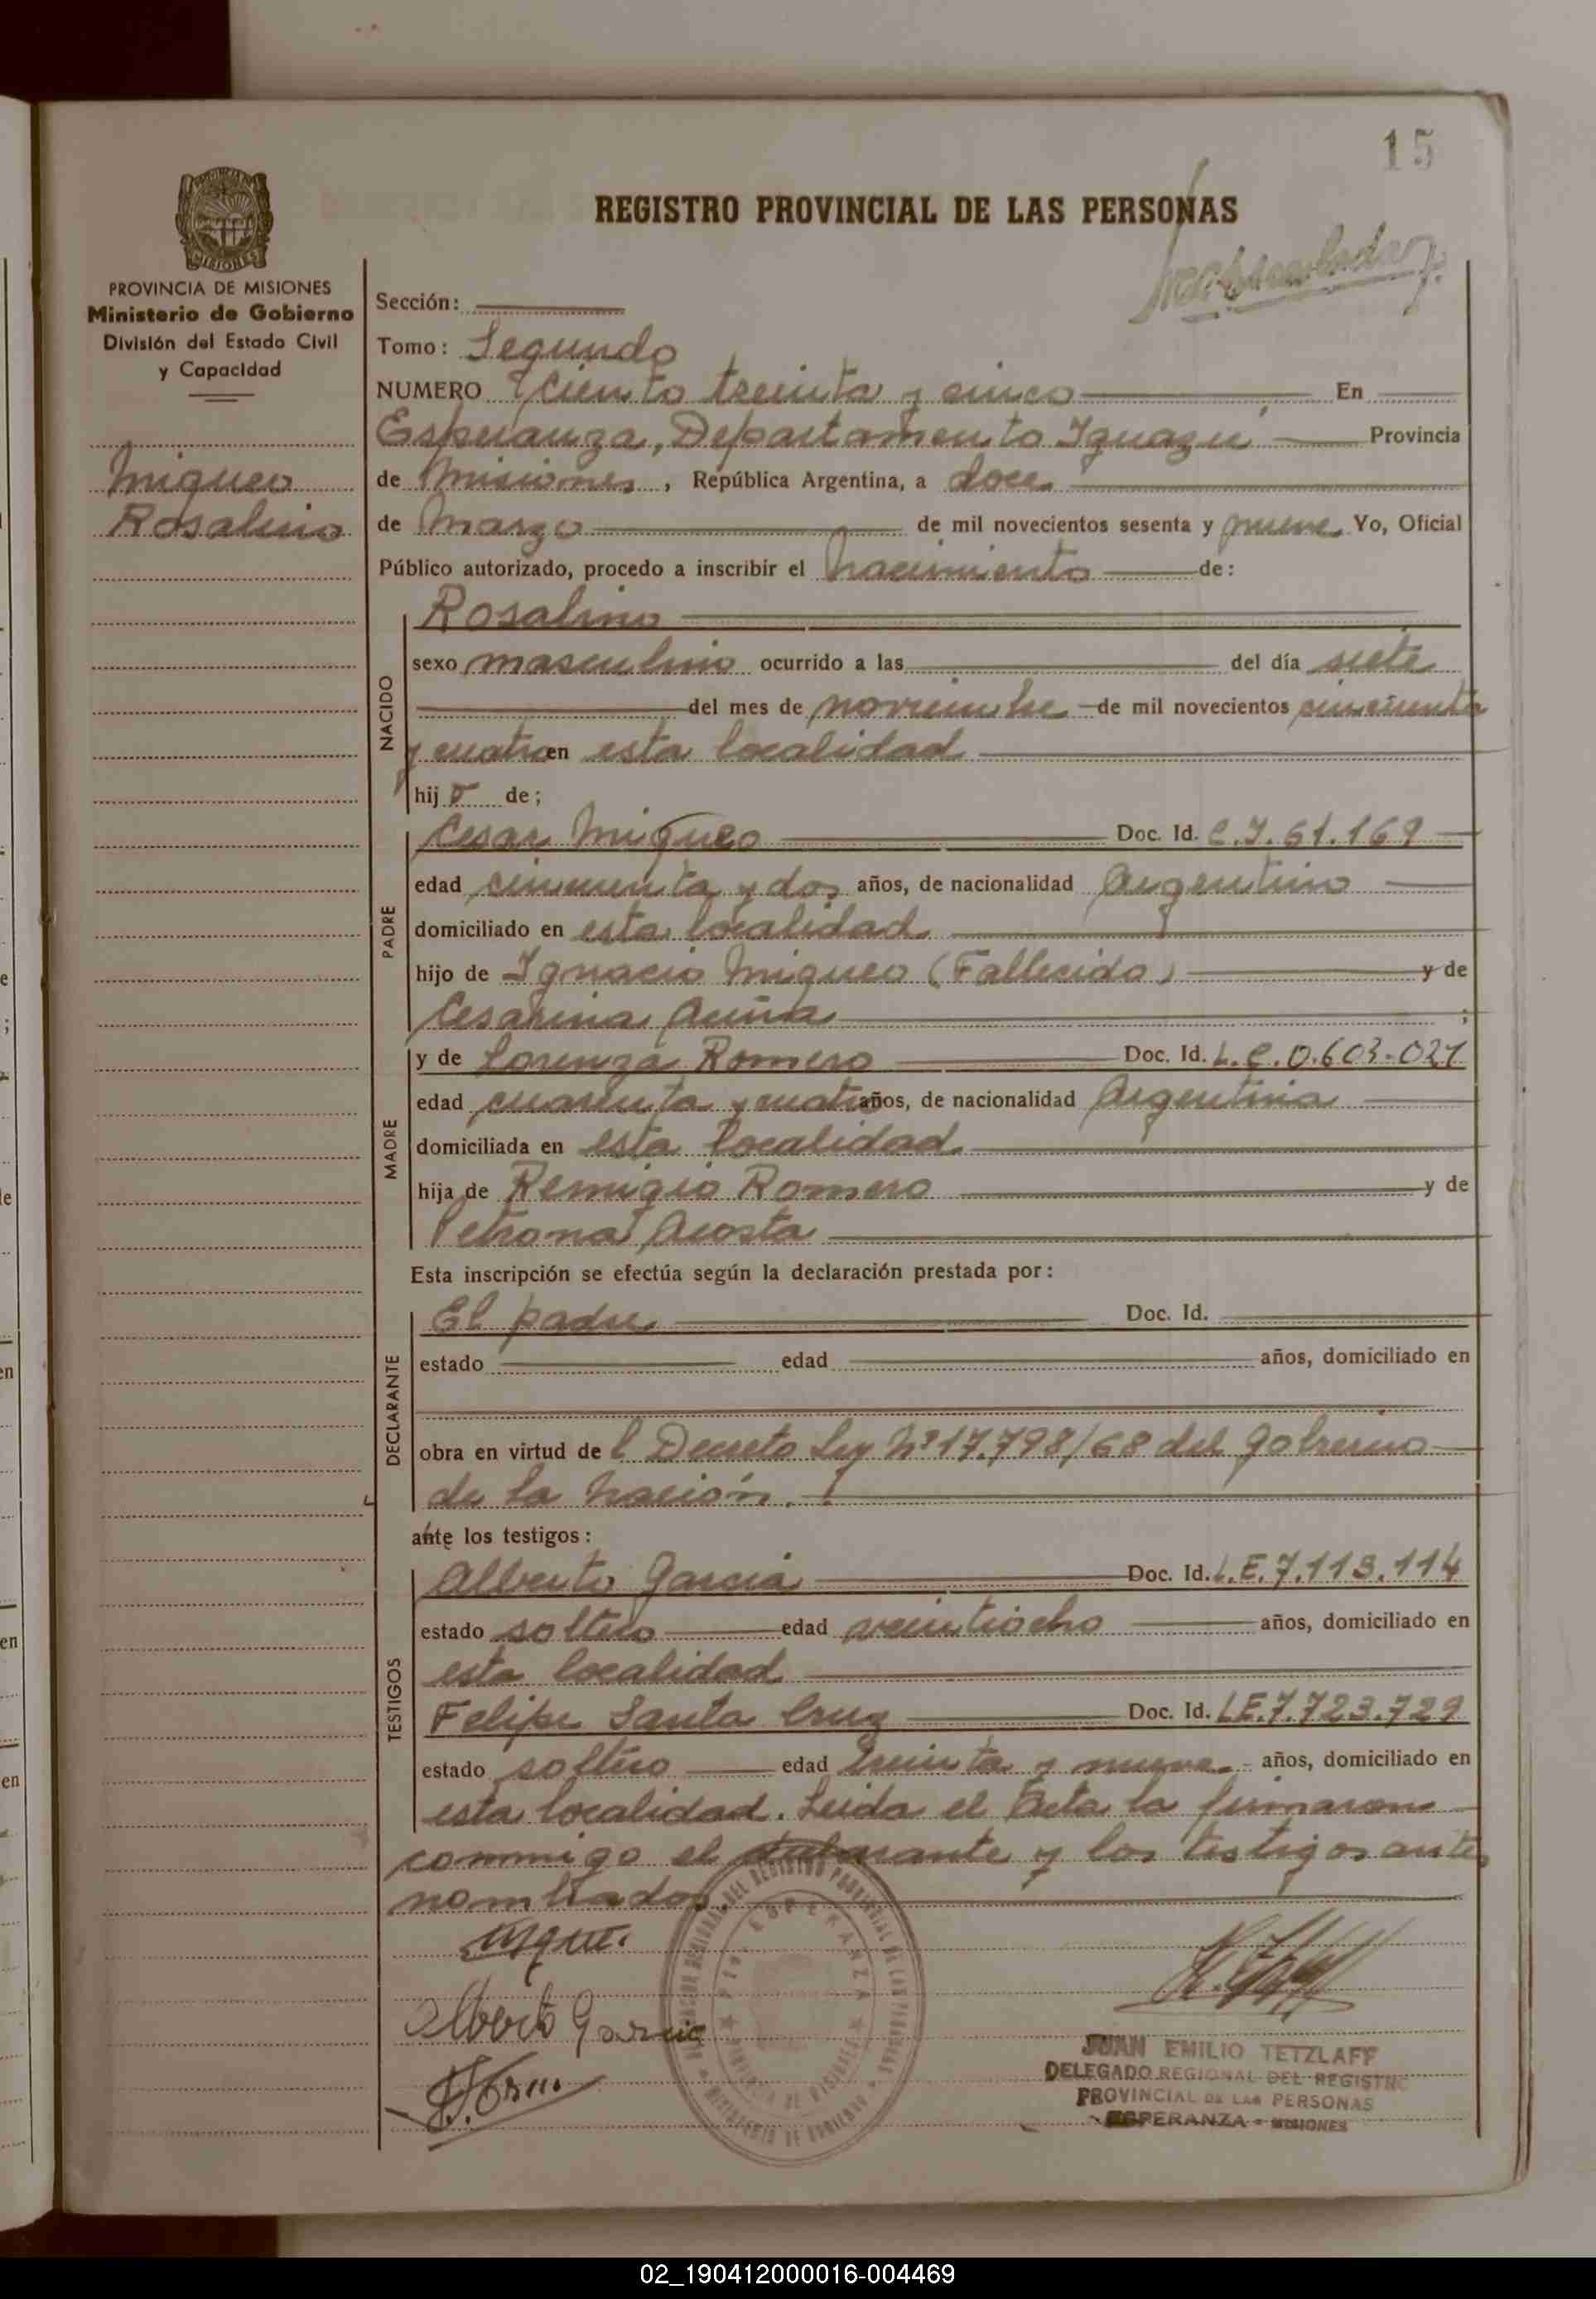 15
REGISTRO PROVINCIAL DE LAS PERSONAS
PROVINCIA DE MISIONES
MISIONES
PROVINCIA DE MISIONES
Ministerio de Gobierno
División del Estado Civil
y Capacidad
Migueo
Rosalino
Sección:
Tomo: Segundo
NUMERO Ciento treinta y cinco En
Esperanza, Departamento Iguazú Provincia
de Misiones, República Argentina, a doce
de Marzo de mil novecientos sesenta y nueve Yo, Oficial
Público autorizado, procedo a inscribir el nacimiento de:
NACIDO
Rosalino
sexo masculino ocurrido a las del día siete
del mes de noviembre de mil novecientos cincuenta
y cuatro en esta localidad
hijo de;
PADRE
Cesar Migueo Doc. Id. C.I. 61.169
edad cincuenta y dos años, de nacionalidad Argentino
domiciliado en esta localidad
hijo de Ignacio Migueo (Fallecido) y de
Cesarina Acuña ;
MADRE
y de Lorenza Romero Doc. Id. L.C. 0.603.021
edad cuarenta y cuatro años, de nacionalidad Argentina
domiciliada en esta localidad
hija de Remigio Romero y de
Petrona Acosta
Esta inscripción se efectúa según la declaración prestada por:
DECLARANTE
El padre Doc. Id.
estado edad años, domiciliado en
obra en virtud del Decreto Ley Nº 17.798/68 del gobierno
de la nación.
ante los testigos:
TESTIGOS
Alberto Garcia Doc. Id. L.E. 7.113.114
estado soltero edad veintiocho años, domiciliado en
esta localidad
Felipe Santa Cruz Doc. Id. L.E. 7.723.729
estado soltero edad treinta y nueve años, domiciliado en
esta localidad. Leida el Acta la firmaron
conmigo el declarante y los testigos ante
nombrados
Alberto Garcia
JUAN EMILIO TETZLAFF
DELEGADO REGIONAL DEL REGISTRO
PROVINCIAL DE LAS PERSONAS
ESPERANZA - MISIONES
02_190412000016-004469